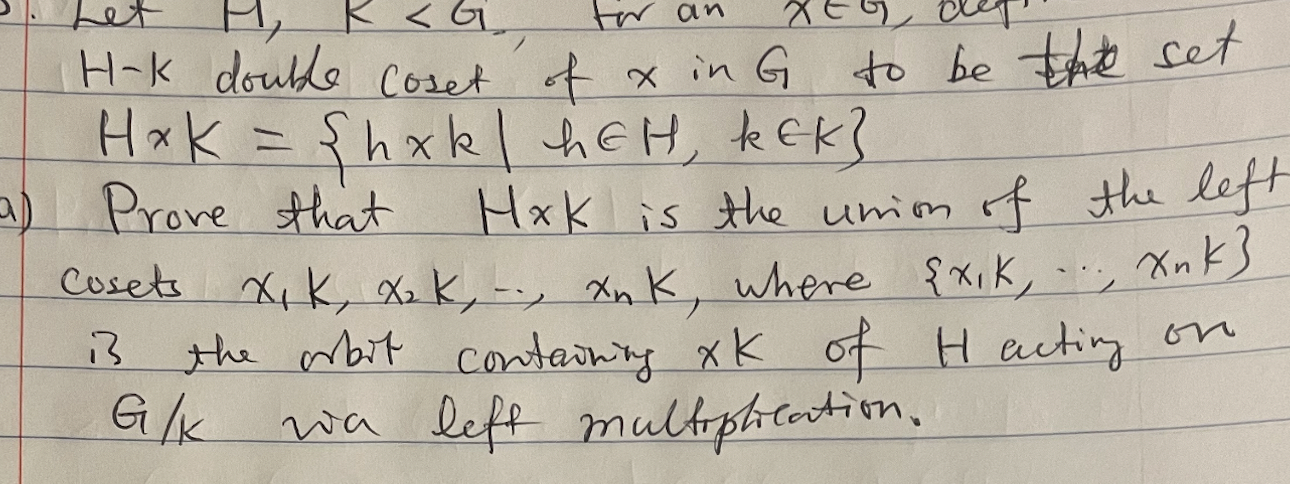 Let H, K < G, for an x ∈ G,
H-K double coset of x in G to be the set
HxK = {hxk | h∈H, k∈K}
a) Prove that HxK is the union of the left
cosets x₁K, x₂K, ..., xₙK, where {x₁K, ..., xₙK}
is the orbit containing xK of H acting on
G/K via left multiplication.